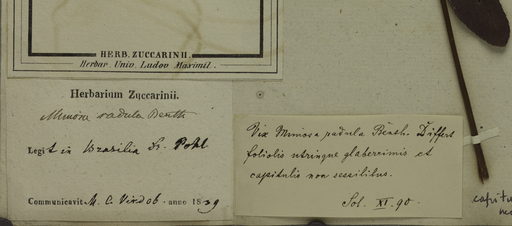 HERB. ZUCCARINII.
Herbar. Univ. Ludov. Maximil.
Herbarium Zuccarinii.
Mimosa radula Benth
Legit in Brasilia Dr. Pohl
Communicavit M. C. Vindob. anno 1839
Vix Mimosa radula Benth. Differt
foliolis utrinque glaberrimis et
capitulis non sessilibus.
XI. 90.